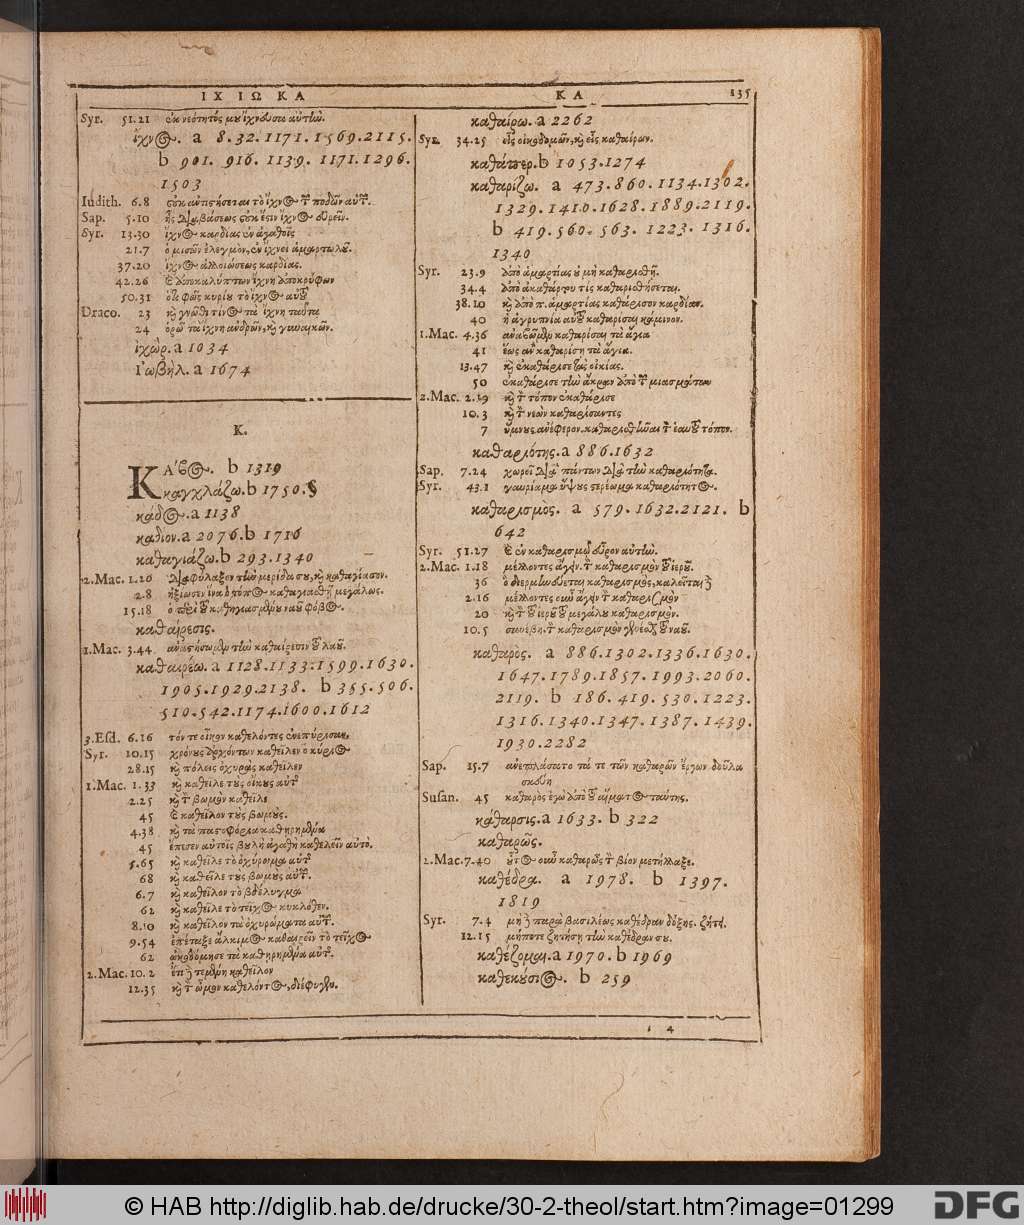 ΙΧ ΙΩ ΚΑ
ΚΑ 135
Syr. 51.21 ἐκ νεότητός μου ἴχνευσα αὐτὴν.
ἴχνος. a 8.32.1171.1569.2115.
b 901. 916. 1139. 1171.1296.
1503
Iudith. 6.8 οὐκ τὸ ἴχνος τῶν ποδῶν αὐτῶν.
Sap. 5.10 ἧς διαβάσεως οὐκ ἔστιν ἴχνος εὑρεῖν.
Syr. 13.30 ἴχνος καρδίας ἐν ἀγαθοῖς
21.7 ὁ μισῶν ἐλεγμὸν, ἐν ἴχνει ἁμαρτωλοῦ.
37.20 ἴχνος ἀλλοιώσεως καρδίας.
42.26 καὶ ἀποκαλύπτων ἴχνη ἀποκρύφων
50.31 ὅτι φῶς κυρίου τὸ ἴχνος αὐτοῦ
Draco. 23 καὶ γνῶθι τίνος τὰ ἴχνη ταῦτα
24 ὁρῶ τὰ ἴχνη ἀνδρῶν, καὶ γυναικῶν.
ἰχὼρ. a 1034
ἰωβὴλ. a 1674
Κ.
ΚΑΒος. b 1319
καγχλάζω. b 1750. §
κάδος. a 1138
καθίον. a 2076. b 1716
καθαγιάζω. b 293.1340
2.Mac. 1.26 διαφύλαξον τὴν μερίδα σου, καὶ καθαγίασον.
2.8 ἠξίωσεν ἵνα ὁ τόπος καθαγιασθῇ μεγάλως.
15.18 ὁ περὶ τοῦ καθηγιασμένου ναοῦ φόβος.
καθαίρεσις.
1.Mac. 3.44 τὴν καθαίρεσιν τοῦ λαοῦ.
καθαιρέω. a 1128.1133.1599.1630.
1905.1929.2138. b 355.506.
510.542.1174.1600.1612
3.Esd. 6.16 τόν τε οἶκον καθελόντες ἐνεπύρισαν,
Syr. 10.15 χρόνους ἀρχόντων καθεῖλεν ὁ κύριος
28.15 καὶ πόλεις ὀχυρὰς καθεῖλεν
1.Mac. 1.33 καὶ καθεῖλε τοὺς οἴκους αὐτῆς
2.25 καὶ τὸν βωμὸν καθεῖλε
45 καὶ καθεῖλον τοὺς βωμοὺς.
4.38 καὶ τὰ παστοφόρια καθηρημένα
45 ἔπεσεν αὐτοῖς βουλὴ ἀγαθὴ καθελεῖν αὐτὸ.
5.65 καὶ καθεῖλε τὸ ὀχύρωμα αὐτῆς
68 καὶ καθεῖλε τοὺς βωμοὺς αὐτῶν.
6.7 καὶ καθεῖλον τὸ βδέλυγμα
62 καὶ καθεῖλε τὸ τεῖχος κυκλόθεν.
8.10 καὶ καθεῖλον τὰ ὀχυρώματα αὐτῶν.
9.54 ἐπέταξε ἄλκιμος καθαιρεῖν τὸ τεῖχος
62 ᾠκοδόμησε τὰ καθηρημένα αὐτῆς.
2.Mac. 10.2 ἔτι τὲ τεμένη καθεῖλον
12.35 καὶ τὸν ὦμον καθελόντος, διέφυγεν.
καθαίρω. a 2262
Syr. 34.25 εἷς οἰκοδομῶν, καὶ εἷς καθαίρων.
καθάπερ. b 1053.1274
καθαρίζω. a 473.860.1134.1302.
1329.1410.1628.1889.2119.
b 419.560. 563. 1223. 1316.
1340
Syr. 23.9 ἀπὸ ἁμαρτίας οὐ μὴ καθαρισθῇ.
34.4 ἀπὸ ἀκαθάρτου τίς καθαρισθήσεται.
38.10 καὶ ἀπὸ π. ἁμαρτίας καθάρισον καρδίαν.
40 ἡ ἀγρυπνία αὐτοῦ καθαρίσαι κάμινον.
1.Mac. 4.36 ἀναβῶμεν καθαρίσαι τὰ ἅγια
41 ἕως ἂν καθαρίσῃ τὰ ἅγια.
13.47 καὶ ἐκαθάρισε τὰς οἰκίας.
50 ἐκαθάρισε τὴν ἄκραν ἀπὸ τῶν μιασμάτων
2.Mac. 2.19 καὶ τὸν τόπον ἐκαθάρισε
10.3 καὶ τὸν νεὼν καθαρίσαντες
7 ὕμνους ἀνέφερον. καθαρισθῆναι τὸν ἑαυτοῦ τόπον.
καθαριότης. a 886.1632
Sap. 7.24 χωρεῖ διὰ πάντων διὰ τὴν καθαριότητα.
Syr. 43.1 γαυρίαμα ὕψους στερέωμα καθαριότητος.
καθαρισμὸς. a 579.1632.2121. b
642
Syr. 51.27 καὶ ἐν καθαρισμῷ εὗρον αὐτὴν.
2.Mac. 1.18 μέλλοντες ἄγειν τὸν καθαρισμὸν τοῦ ἱεροῦ.
36 ὃ διερμηνεύεται καθαρισμὸς, καλεῖται δὲ
2.16 μέλλοντες οὖν ἄγειν τὸν καθαρισμὸν
20 καὶ τὸν τοῦ ἱεροῦ τοῦ μεγάλου καθαρισμὸν.
10.5 συνέβη. τὸν καθαρισμὸν γενέσθαι τοῦ ναοῦ.
καθαρὸς. a 886.1302.1336.1630.
1647.1789.1857.1993.2060.
2119. b 186.419.530.1223.
1316.1340.1347.1387.1439.
1930.2282
Sap. 15.7 ἀνεπλάσατο τά τε τῶν καθαρῶν ἔργων δοῦλα
σκεύη
Susan. 45 καθαρὸς ἐγὼ ἀπὸ τοῦ αἵματος ταύτης.
κάθαρσις. a 1633. b 322
καθαρῶς.
2.Mac. 7.40 οὗτος οὖν καθαρῶς τὸν βίον μετήλλαξε.
καθέδρα. a 1978. b 1397.
1819
Syr. 7.4 μὴ δὲ παρὰ βασιλέως καθέδραν δόξης. ζήτει.
12.15 μήποτε ζητήσῃ τὴν καθέδραν σου.
καθέζομαι. a 1970. b 1969
καθεκούσιος. b 259
i 4
© HAB http://diglib.hab.de/drucke/30-2-theol/start.htm?image=01299
DFG